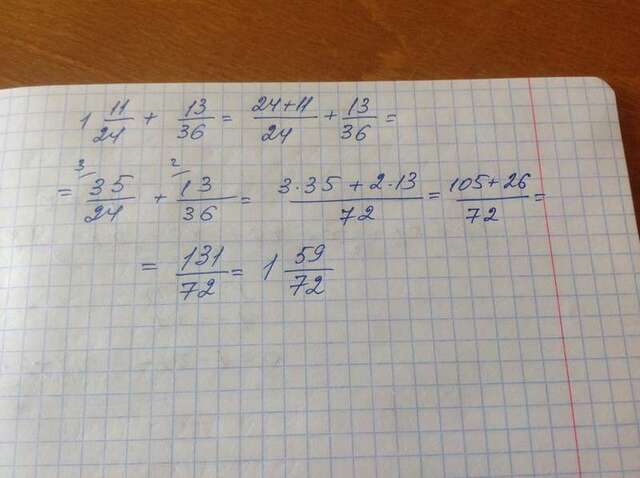 1 11/24 + 13/36 = (24+11)/24 + 13/36 =
= ³35/24 + ²13/36 = (3·35 + 2·13)/72 = (105+26)/72 =
= 131/72 = 1 59/72